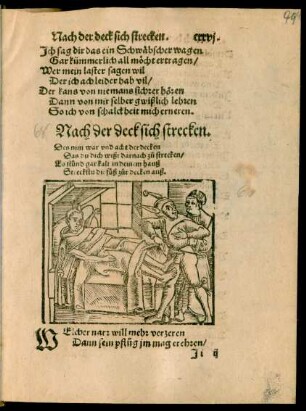 99
Nach der deck sich strecken. cxxvj.
Ich sag dir das ein Schwäbscher wagen
Gar kümmerlich all möcht ertragen/
Wer mein laster sagen wil
Der ich ach leider hab vil/
Der kans von niemans sichrer hören
Dann von mir selber gwißlich lehren
So ich von schalckheit mich erneren.
Nach der deck sich strecken.
Den nim war vnd acht der decken
Das du dich wißst darnach zů strecken/
Es stünd gar kalt in deinem hauß
Streckstu die füß zůr decken auß.
WElcher narr will mehr verzeren
Dann sein pflůg jm mag erehren/
Ji ij